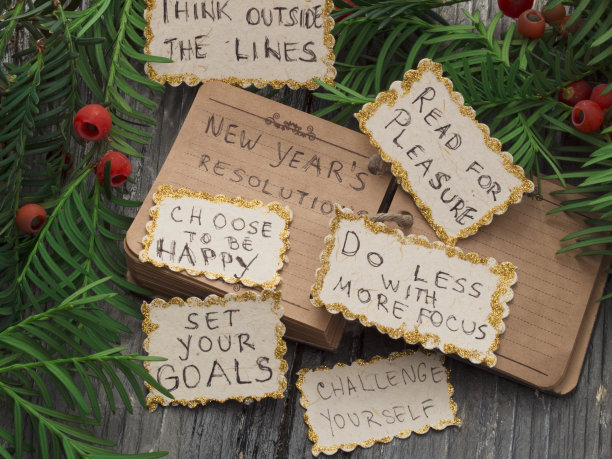 THINK OUTSIDE
THE LINES
NEW YEAR'S
RESOLUTIONS
READ FOR
PLEASURE
CHOOSE
TO BE
HAPPY
DO LESS
WITH
MORE FOCUS
SET
YOUR
GOALS
CHALLENGE
YOURSELF